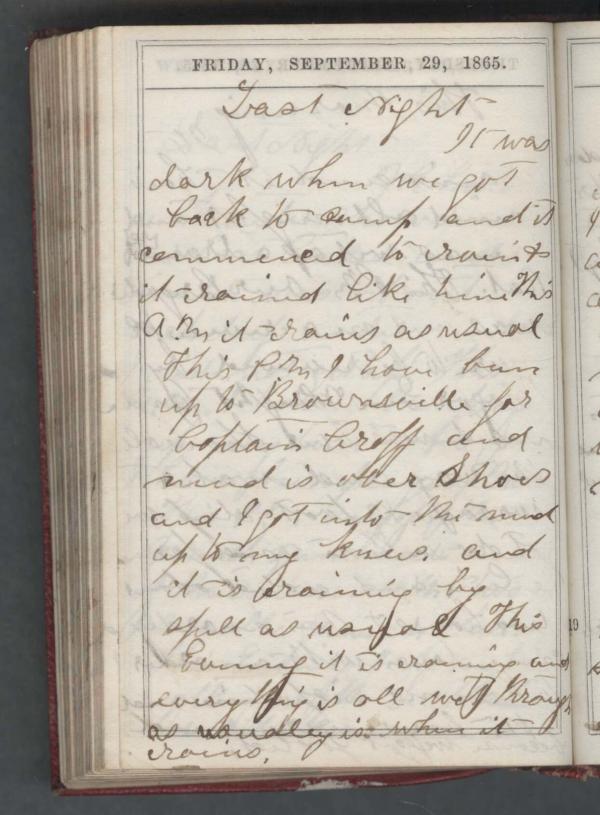 FRIDAY, SEPTEMBER 29, 1865.
Last Night
It was
dark when we got
back to camp and it
commenced to rain &
it rained like This
A.M it rains as usual
This P M I have bun
up to Brownsville for
Captain Croff and
mud is over Shoes
and I got into the mud
up to my knees. and
it is raining by
spell as usual This
Evening it is raining and
every thing is all wet Through
as usualey is when it
rains.
19